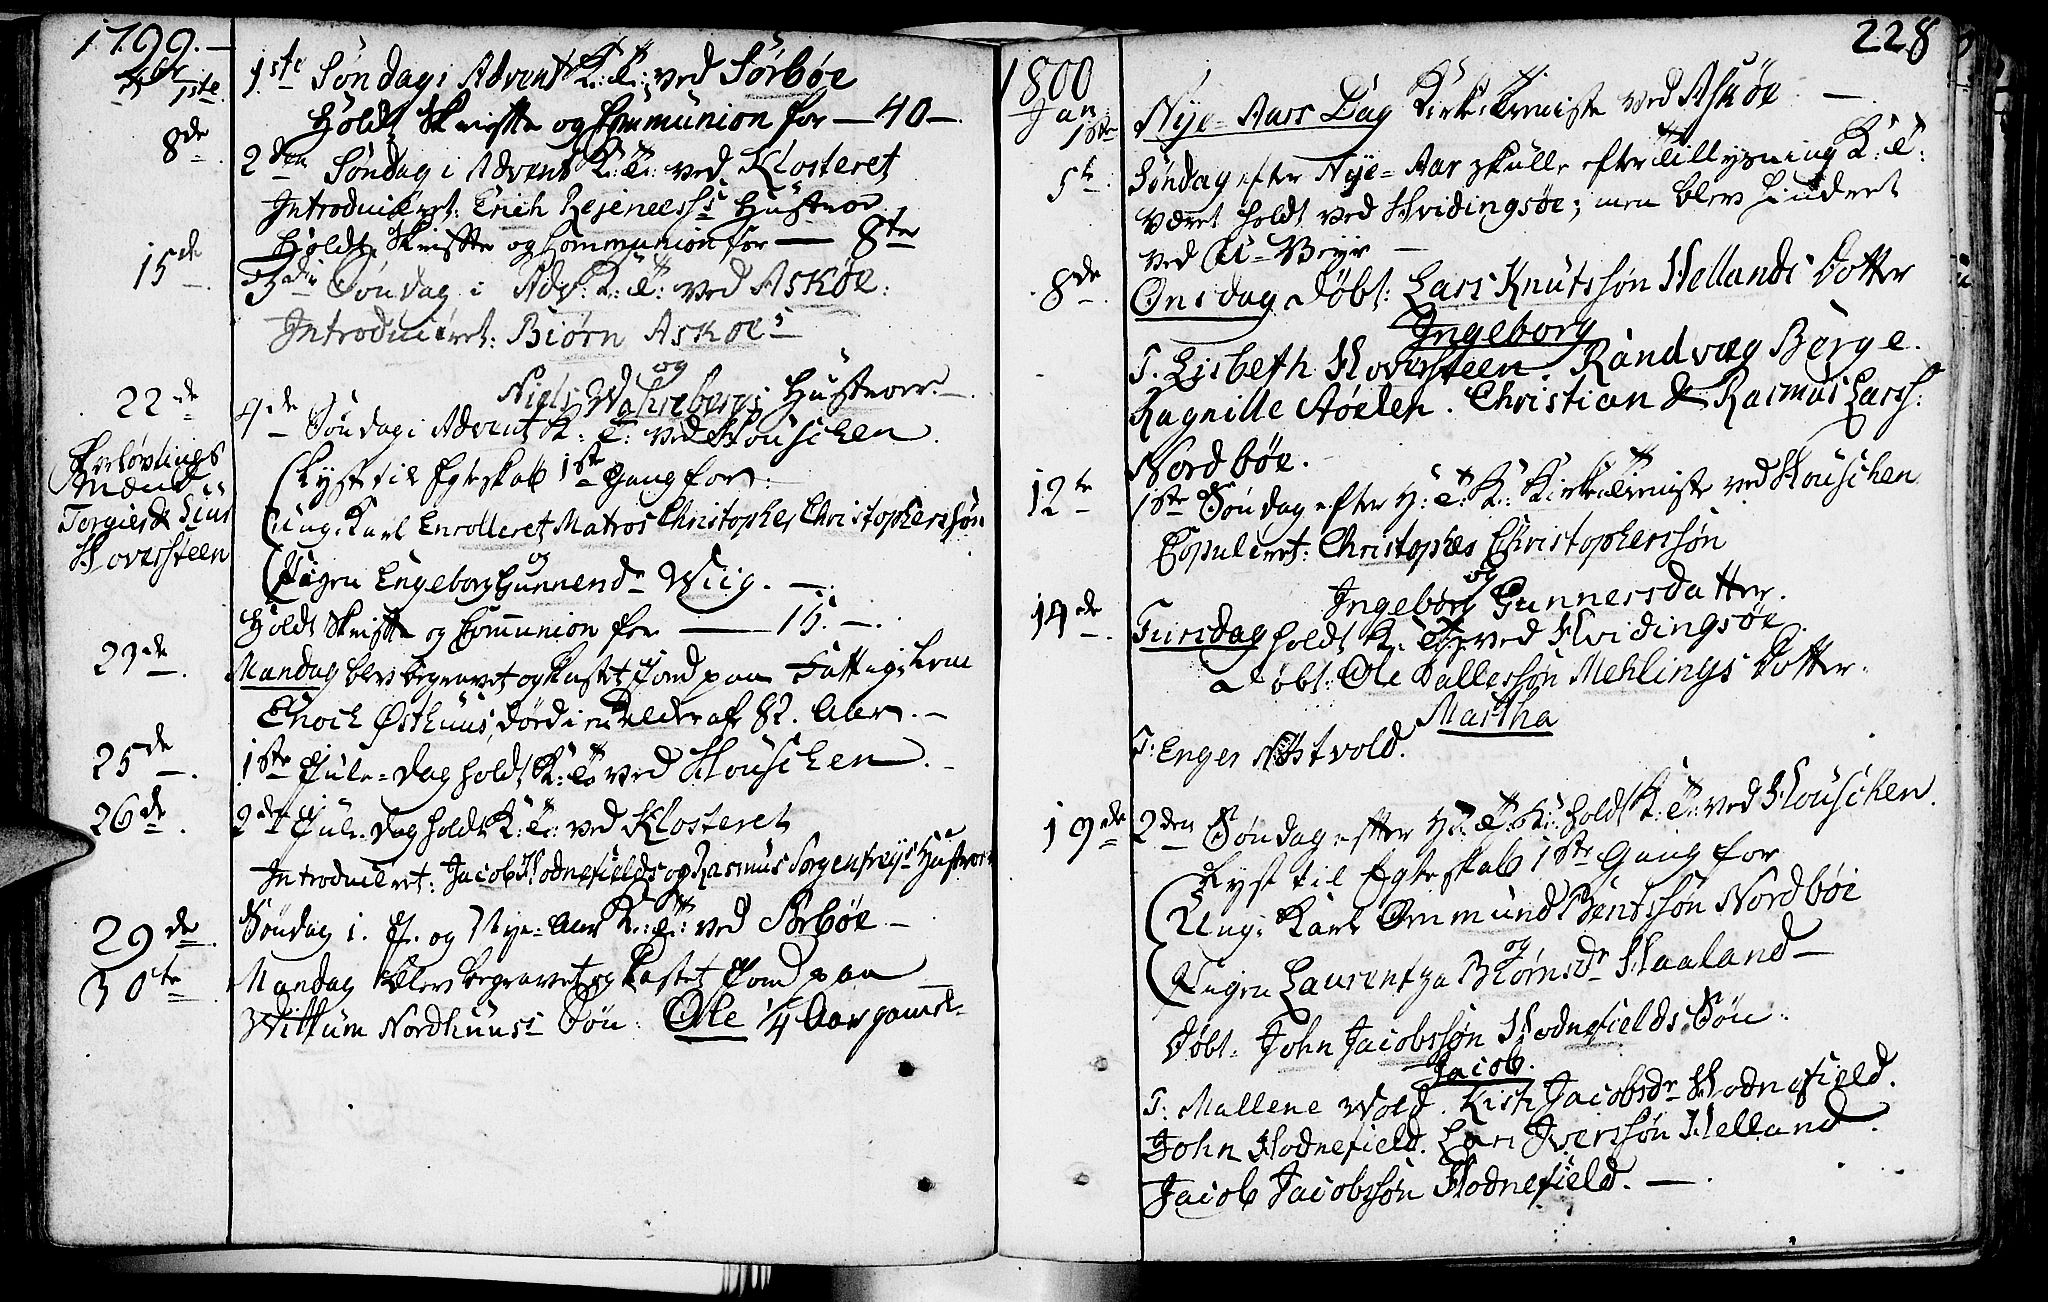 1799.
Xbr 1ste
1ste Søndag i Advent K: T: ved Sørbøe
Holdt Skrifte og Communion for — 40 —.
8de
2den Søndag i Advent K: T: ved Klosteret
Introduceret: Erich Rejeneess Hustroe
Holdt Skrifte og Communion for — 8te
15de
3die Søndag i Adv: K: T: ved Askøe:
Introduceret: Biørn Askøes
og
Niels Wahlebergs Hustroer. —
22de
4de Søndag i Advent K: T: ved Houschen.
Forløvlings
Mænd
Torgier &
Hoversteen
Lyst til Egteskab 1ste Gang for:
Ung Karl Enrolleret Matros Christopher Christopherssøn
og
Pigen Engeborg Gunnersd. Wiig. —.
Holdt Skrifte og Communion for — 15. —.
23de
Mandag blev begravet og kastet Jord paa Fattiglem
Enoch Østhuus, død i en Alder af 82. Aar. —
25de
1ste Jule=Dag holdt K: T: ved Houschen.
26de
2den Jule=Dag holdt K: T: ved Klosteret
Introduceret: Jacob Hodnefields og Rasmus Sorgenfreys Hustroer
29de
Søndag i. J. og Nye=Aar K: T: ved Sørbøe —
30te
Mandag blev begravet og kastet Jord paa
Wittum Nordhuus Søn: Ole 1/4 Aar gammel
228
1800
Jan
1ste
Nye=Aars Dag Kirketieniste ved Askøe —
5te
Søndag efter Nye=Aar skulle efter Tillysning K: T:
været holdt ved Hvidingsøe; men blev hindret
ved U=Veyr —
8de
Onsdag Døbt: Lars Knutssøn Hellands Dotter
Ingeborg
T. Lisbeth Hoversteen. Randvæg Børge.
Ragnille Aøelen. Christian & Rasmus Larss:
Nordbøe.
12te
1ste Søndag efter H: T: K: Kirketieniste ved Houschen
Copuleret: Christopher Christopherssøn
og
Ingebør Gunnersdatter.
14de
Tiirsdag holdt K: T: ved Hvidingsøe
Døbt: Ole Pallessøn Mehlings Dotter.
Martha
T: Enger Østvold.
19de
2den Søndag efter H: T: K: holdt K: T: ved Houschen.
Lyst til Egteskab 1ste Gang for
Ung Karl Ommund Bentssøn Nordbøe
og
Pigen Laurentza Biørnsdr Haaland —
Døbt: John Jacobssøn Hodnefields Søn:
Jacob.
T: Mallene Wold. Kisti Jacobsdr Hodnefield.
John Hodnefield. Lars Iverssøn Helland.
Jacob Jacobssøn Hodnefield. —.